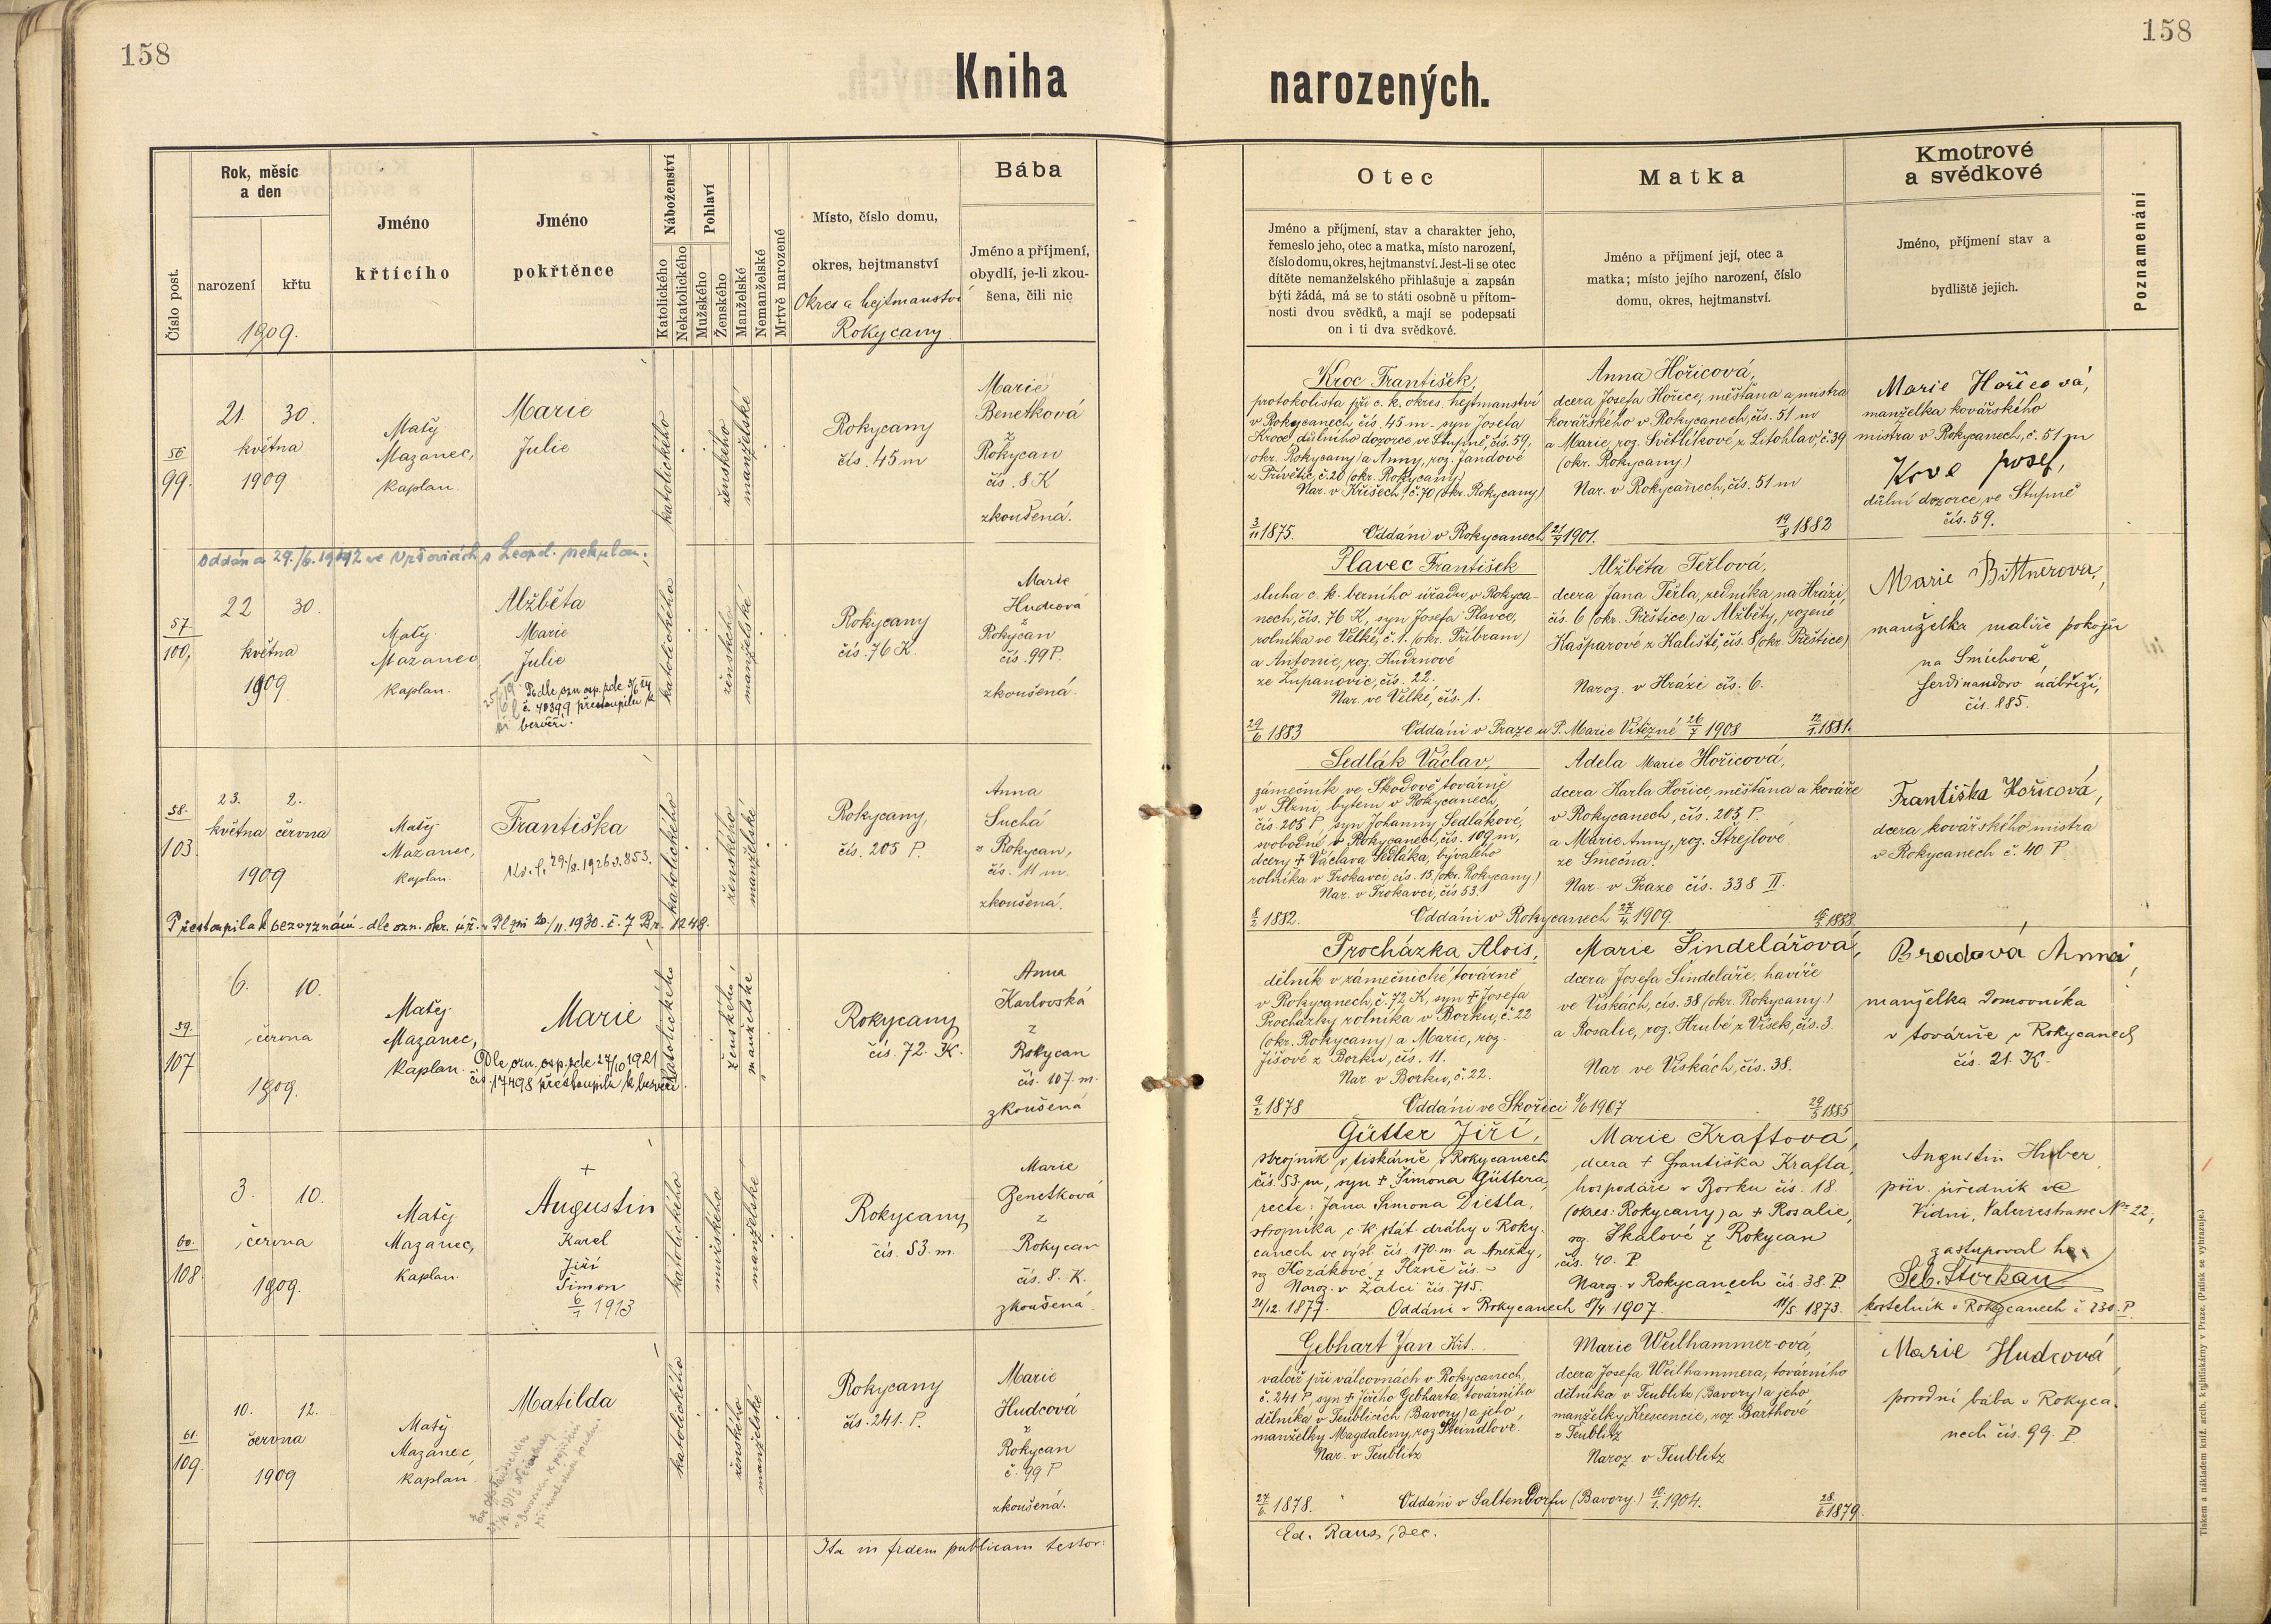 158
158
Kniha
narozených.
Číslo post.
Rok, měsíc
a den
narození
křtu
1909.
Jméno
křtícího
Jméno
pokřtěnce
Náboženství
Katolického
Nekatolického
Pohlaví
Mužského
Ženského
Manželské
Nemanželské
Mrtvě narozené
Místo, číslo domu,
okres, hejtmanství
Okres a hejtmanství
Rokycany
Bába
Jméno a příjmení,
obydlí, je-li zkou-
šena, čili nic
Otec
Jméno a příjmení, stav a charakter jeho,
řemeslo jeho, otec a matka, místo narození,
číslo domu, okres, hejtmanství. Jest-li se otec
dítěte nemanželského přihlašuje a zapsán
býti žádá, má se to státi osobně u přítom-
nosti dvou svědků, a mají se podepsati
on i ti dva svědkové.
Matka
Jméno a příjmení její, otec a
matka; místo jejího narození, číslo
domu, okres, hejtmanství.
Kmotrové
a svědkové
Jméno, příjmení stav a
bydliště jejich.
Poznamenání
56
99.
21. 30.
května
1909
Matěj
Mazanec,
kaplan.
Marie
Julie
katolického
ženského
manželské
Rokycany
čís. 45 m
Marie
Benetková
z
Rokycan
čís. 8 K
zkoušená.
Kroc František,
protokolista při c. k. okres. hejtmanství
v Rokycanech čís. 45 m - syn Josefa
Kroce, důlního dozorce ve Stupně, čís. 59,
(okr. Rokycany) a Anny, roz. Jandové
z Přívětic, č. 20 (okr. Rokycany)
Nar. v Křišech, č. 70 (okr. Rokycany)
3/11 1875. Oddáni v Rokycanech 1901.
Anna Hořicová,
dcera Josefa Hořice, měšťana a mistra
kovářského v Rokycanech, čís. 51 m
a Marie, roz. Světlíkové z Litohlav, č. 39
(okr. Rokycany)
Nar. v Rokycanech, čís. 51 m
19/8 1882
Marie Hořicová,
manželka kovářského
mistra v Rokycanech, č. 51 m
Josef,
důlní dozorce, ve Stupně
čís. 59.
Oddána 29./6. ve Vršovicích s Leopol.
57.
100.
22 30.
května
1909
Matěj
Mazanec,
kaplan.
Alžběta
Marie
Julie
Podle ozn. osp. zde
č. 40399 přestoupila k
bezvěří.
katolického
ženského
manželské
Rokycany
čís. 76 K.
Marie
Hudcová
z
Rokycan
čís. 99 P.
zkoušená.
Plavec František
sluha c. k. berního úřadu v Rokyca-
nech, čís. 76 K, syn Josefa Plavce,
rolníka ve Velké, č. 1. (okr. Příbram)
a Antonie, roz. Kudrnové
ze Županovic, čís. 22.
Nar. ve Velké, čís. 1.
29/6 1883 Oddáni v Praze u P. Marie Vítězné 26/7 1908
Alžběta Težlová,
dcera Jana Težla, zedníka, na Hrázi,
čís. 6 (okr. Přeštice) a Alžběty, rozené
Kašparové z Kaliště, čís. 8 (okr. Přeštice)
Naroz. v Hrázi čís. 6.
1881.
Marie Bittnerova,
manželka malíře pokojů
na Smíchově,
Ferdinandovo nábřeží,
čís. 885.
58.
103.
23. 2.
května června
1909
Matěj
Mazanec,
kaplan.
Františka
katolického
ženského
manželské
Rokycany,
čís. 205 P.
Anna
Suchá
z Rokycan,
čís. 11 m.
zkoušená.
Sedlák Václav,
zámečník ve Škodově továrně
v Plzni, bytem v Rokycanech,
čís. 205 P, syn Johanny Sedlákové,
svobodné v Rokycanech, čís. 109 m,
dcery † Václava Sedláka, bývalého
rolníka v Trokavci, čís. 15. (okr. Rokycany)
Nar. v Trokavci, čís 53.
1882. Oddáni v Rokycanech 27/4 1909.
Adela Marie Hořicová,
dcera Karla Hořice, měšťana a kováře
v Rokycanech, čís. 205 P.
a Marie Anny, roz. Strejlové
ze Smečna.
Nar. v Praze čís. 338 II.
1888.
Františka Hořicová,
dcera kovářského mistra
v Rokycanech č. 40 P.
Přestoupila k bezvyznání - dle ozn. okr. úř. v Plzni 20./11. 1930. č. 7 Br. 1248.
59.
107
6. 10.
června
1909.
Matěj
Mazanec,
kaplan.
Marie
Dle ozn. osp. zde 27/10 1921
čís. 17498 přestoupila k bezvěří.
katolického
ženského
manželské
Rokycany
čís. 72. K.
Anna
Karlovská
z
Rokycan
čís. 107. m.
zkoušená
Procházka Alois,
dělník v zámečnické továrně
v Rokycanech, č. 72 K, syn † Josefa
Procházky rolníka v Borku, č. 22
(okr. Rokycany) a Marie, roz.
Jíšové z Borku, čís. 11.
Nar. v Borku, č. 22.
9/2 1878 Oddáni ve Skořici 8/6 1907
Marie Šindelářová,
dcera Josefa Šindeláře, havíře
ve Vískách, čís. 38 (okr. Rokycany.)
a Rosalie, roz. Hrubé z Vísek, čís. 3.
Nar. ve Vískách, čís. 38.
29/5 1885
Bradová Anna,
manželka domovníka
v továrně v Rokycanech
čís. 21. K.
60.
108.
3. 10.
června
1909.
Matěj
Mazanec,
kaplan.
†
Augustin
Karel
Jiří
Šimon
6/7 1913
katolického
mužského
manželské
Rokycany
čís. 53. m.
Marie
Benetková
z
Rokycan
čís. 8. K.
zkoušená.
Gütter Jiří,
strojník v tiskárně v Rokycanech
čís. 53. m, syn † Šimona Güttera,
recte: Jana Šimona Dietla,
strojníka c. k. stát. dráhy v Roky-
canech ve výsl. čís. 170. m. a Anežky,
roz. Kozákové z Plzně čís. -
Naroz. v Žatci čís. 715.
21/12. 1877. Oddáni v Rokycanech 8/4 1907.
Marie Kraftová,
dcera † Františka Krafta,
hospodáře v Borku čís. 18.
(okres: Rokycany) a † Rosalie,
roz. Skalové z Rokycan
čís. 40. P.
Naroz. v Rokycanech čís. 38. P.
11/5. 1873.
Augustin Huber
priv. úředník ve
Vídni, Valeriestrasse No 22.,
zastupoval ho
Seb. Štorkan
kostelník v Rokycanech č. 230. P.
61.
109.
10. 12.
června
1909
Matěj
Mazanec,
kaplan.
Matilda
katolického
ženského
manželské
Rokycany
čís. 241. P.
Marie
Hudcová
z
Rokycan
č. 99 P
zkoušená.
Gebhart Jan Křt.
valcíř při válcovnách v Rokycanech,
č. 241 P, syn † Jiřího Gebharta, továrního
dělníka v Teublicích (Bavory) a jeho
manželky Magdaleny, roz. Steindlové.
Nar. v Teublitz
27/6. 1878. Oddáni v Saltendorfu (Bavory.) 10/1. 1904.
Marie Weilhammer-ová,
dcera Josefa Weilhammera, továrního
dělníka v Teublitz (Bavory) a jeho
manželky Krescencie, roz. Barthové
z Teublitz
Naroz. v Teublitz
28/6. 1879.
Marie Hudcová,
porodní bába v Rokyca-
nech čís. 99. P.
Ita in fidem publicam testor:
Ed. Raus, dec.
Tiskem a nákladem kníž. arcib. knihtiskárny v Praze. (Patisk se vyhrazuje.)